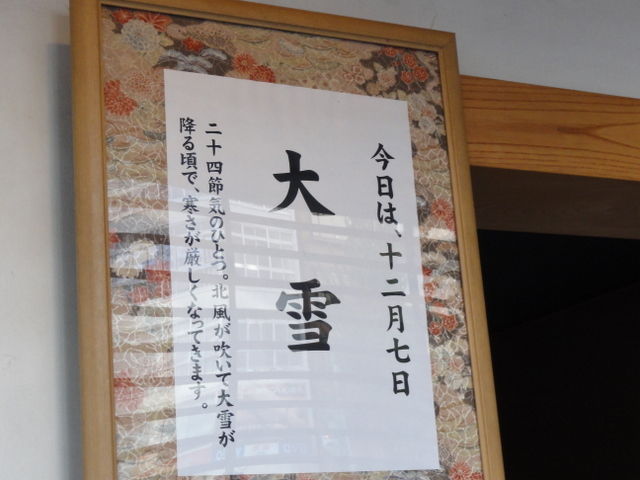 今日は、十二月七日
大雪
二十四節気のひとつ。北風が吹いて大雪が
降る頃で、寒さが厳しくなってきます。